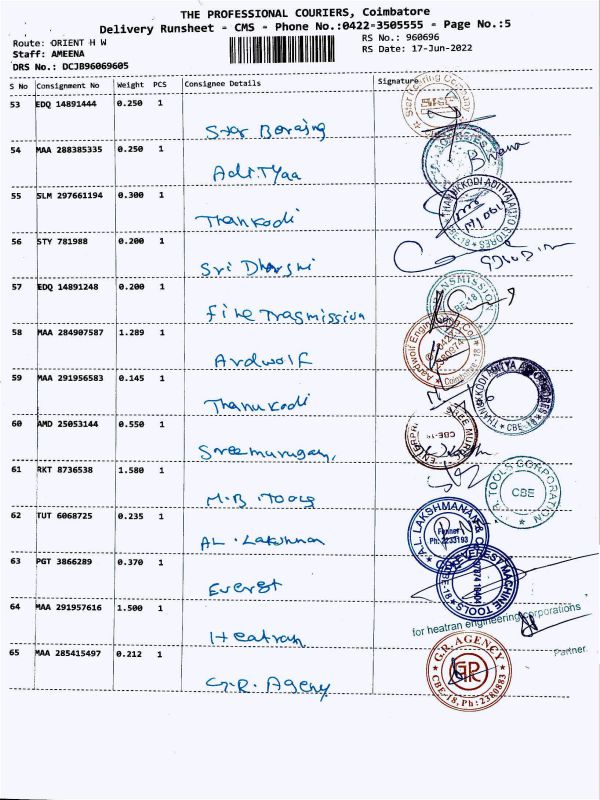 THE PROFESSIONAL COURIERS, Coimbatore
Delivery Runsheet - CMS - Phone No.:0422-3505555 - Page No.:5
Route: ORIENT H W
RS No.: 960696
Staff: AMEENA
RS Date: 17-Jun-2022
DRS No.: DCJB96069605
S No Consignment No Weight PCS Consignee Details Signature
53 EDQ 14891444 0.250 1
Star Boraing
Star Boring Company
54 MAA 288385335 0.250 1
AdiTyaa
55 SLM 297661194 0.300 1
Thankodi
THANUKKODI ADITYA AUTO STORES
CBE-18
56 STY 781988 0.200 1
Sri Dharshi
57 EDQ 14891248 0.200 1
Fine Trasmission
CBE-18
58 MAA 284907587 1.289 1
Ardwolf
Aardwolf
Coimbatore-18
59 MAA 291956583 0.145 1
Thanukodi
THANUKKODI ADITYA
CBE-18
60 AMD 25053144 0.550 1
Sreemurugan,
CBE-18
61 RKT 8736538 1.580 1
M.B. Tools
TOOLS CORPORATION
CBE
62 TUT 6068725 0.235 1
AL. Lakshman
A.L. LAKSHMANAN & CO
Ph: 2233193
63 PGT 3866289 0.370 1
Everst
EVEREST MACHINE TOOLS
CBE-18
64 MAA 291957616 1.500 1
Heatran
for heatran engineering corporations
Partner.
65 MAA 285415497 0.212 1
G.R. Ageny
G.R. AGENCY
GR
CBE-18, Ph: 2380883